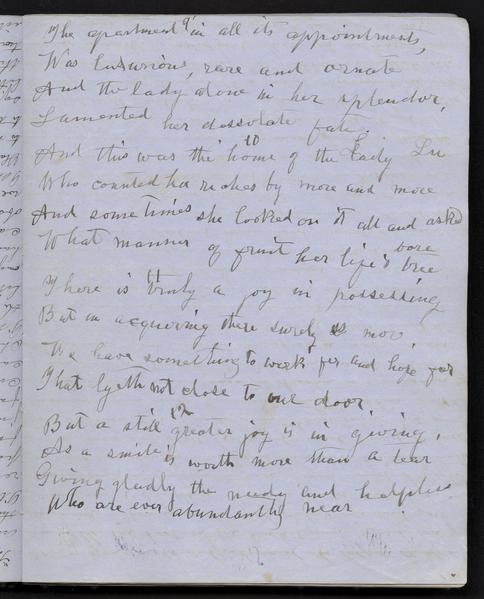 9
The apartment in all its appointments,
Was luxurious, rare and ornate
And the lady alone in her splendor,
Lamented her dessolate fate,
10
And this was the home of the Lady Lu
Who counted her riches by more and more
And sometimes she looked on it all and asked
What manner of fruit her life's tree bore
11
There is truly a joy in possessing
But in acquiring there surely is more
We have something to work for and hope for
That lyeth not close to our door
12
But a still greater joy is in giving,
As a smile is worth more than a tear
Giving gladly the needy and helpless
Who are ever abundantly near